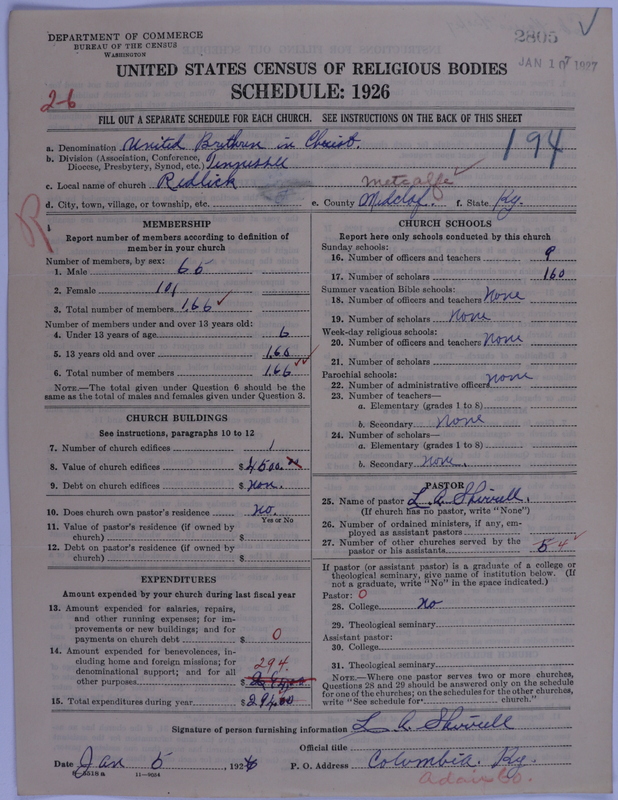 DEPARTMENT OF COMMERCE
BUREAU OF THE CENSUS
WASHINGTON
2805
JAN 10 1927
UNITED STATES CENSUS OF RELIGIOUS BODIES
SCHEDULE: 1926
2-6
FILL OUT A SEPARATE SCHEDULE FOR EACH CHURCH. SEE INSTRUCTIONS ON THE BACK OF THIS SHEET
194
a. Denomination United Brethren in Christ.
b. Division (Association, Conference, Diocese, Presbytery, Synod, etc.) Tennessee
c. Local name of church Redlick
Metcalfe
d. City, town, village, or township, etc. e. County Medclef. f. State Ky.
R
MEMBERSHIP
Report number of members according to definition of
member in your church
Number of members, by sex:
1. Male 65
2. Female 101
3. Total number of members 166
Number of members under and over 13 years old:
4. Under 13 years of age 6
5. 13 years old and over 160
6. Total number of members 166
NOTE.—The total given under Question 6 should be
same as the total of males and females given under Question 3.
CHURCH BUILDINGS
See instructions, paragraphs 10 to 12
7. Number of church edifices 1
8. Value of church edifices $ 4500.
9. Debt on church edifices $ non.
10. Does church own pastor's residence no.
Yes or No
11. Value of pastor's residence (if owned by
church) $
12. Debt on pastor's residence (if owned by
church) $
EXPENDITURES
Amount expended by your church during last fiscal year
13. Amount expended for salaries, repairs,
and other running expenses; for im-
provements or new buildings; and for
payments on church debt $ 0
14. Amount expended for benevolences, in-
cluding home and foreign missions; for
denominational support; and for all
other purposes $ 294.
15. Total expenditures during year $ 294.00
CHURCH SCHOOLS
Report here only schools conducted by this church
Sunday schools:
16. Number of officers and teachers 9
17. Number of scholars 160
Summer vacation Bible schools:
18. Number of officers and teachers None
19. Number of scholars None
Week-day religious schools:
20. Number of officers and teachers None
21. Number of scholars
Parochial schools:
22. Number of administrative officers none
23. Number of teachers—
a. Elementary (grades 1 to 8)
b. Secondary None
24. Number of scholars—
a. Elementary (grades 1 to 8)
b. Secondary None.
PASTOR
25. Name of pastor L. A. Shirrell.
(If church has no pastor, write "None")
26. Number of ordained ministers, if any, em-
ployed as assistant pastors
27. Number of other churches served by the
pastor or his assistants 5 4
If pastor (or assistant pastor) is a graduate of a college or
theological seminary, give name of institution below. (If
not a graduate, write "No" in the space indicated.)
Pastor: 0
28. College no
29. Theological seminary
Assistant pastor:
30. College
31. Theological seminary
NOTE.—Where one pastor serves two or more churches,
Questions 28 and 29 should be answered only on the schedule
for one of the churches; on the schedules for the other churches,
write "See schedule for church."
Signature of person furnishing information L. A. Shirrell
Official title
Date Jan 5, 1926 P. O. Address Columbia. Ky.
11-9664
Adair Co.